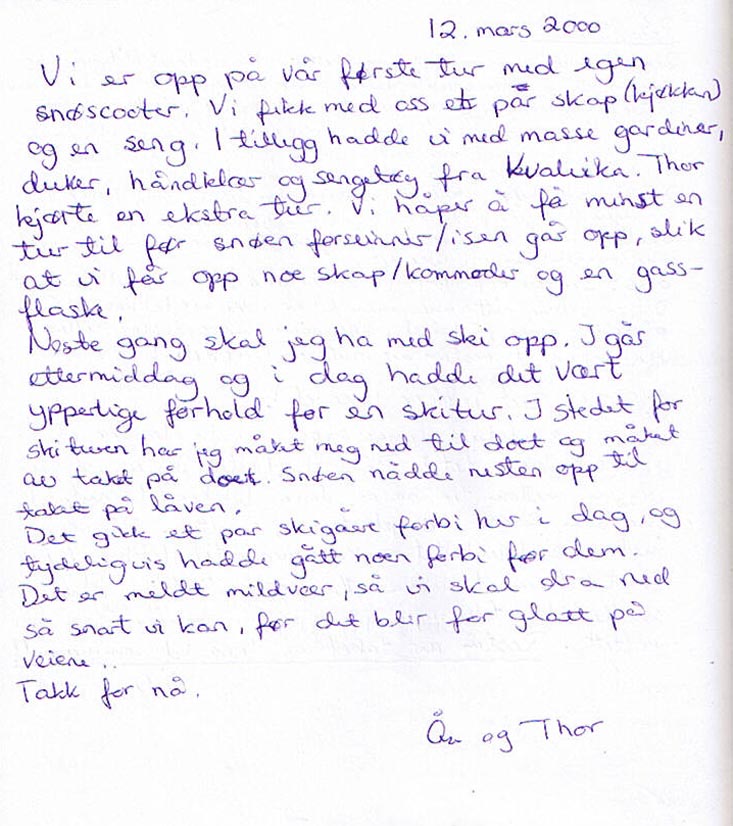 12. mars 2000
Vi er opp på vår første tur med egen
snøscooter. Vi fikk med oss et par skap (kjøkken)
og en seng. I tillegg hadde vi med masse gardiner,
duker, håndklær og sengetøy fra Kvalvika. Thor
kjørte en ekstra tur. Vi håper å få minst en
tur til før snøen forsvinner/isen går opp, slik
at vi får opp noe skap/kommoder og en gass-
flaske.
Neste gang skal jeg ha med ski opp. I går
ettermiddag og i dag hadde det vært
ypperlige forhold for en skitur. I stedet for
skituren har jeg måket meg ned til doet og måket
av taket på doet. Snøen nådde nesten opp til
taket på låven.
Det gikk et par skigåere forbi her i dag, og
tydeligvis hadde gått noen forbi før dem.
Det er meldt mildvær, så vi skal dra ned
så snart vi kan, før det blir for glatt på
veiene..
Takk for nå.
og Thor